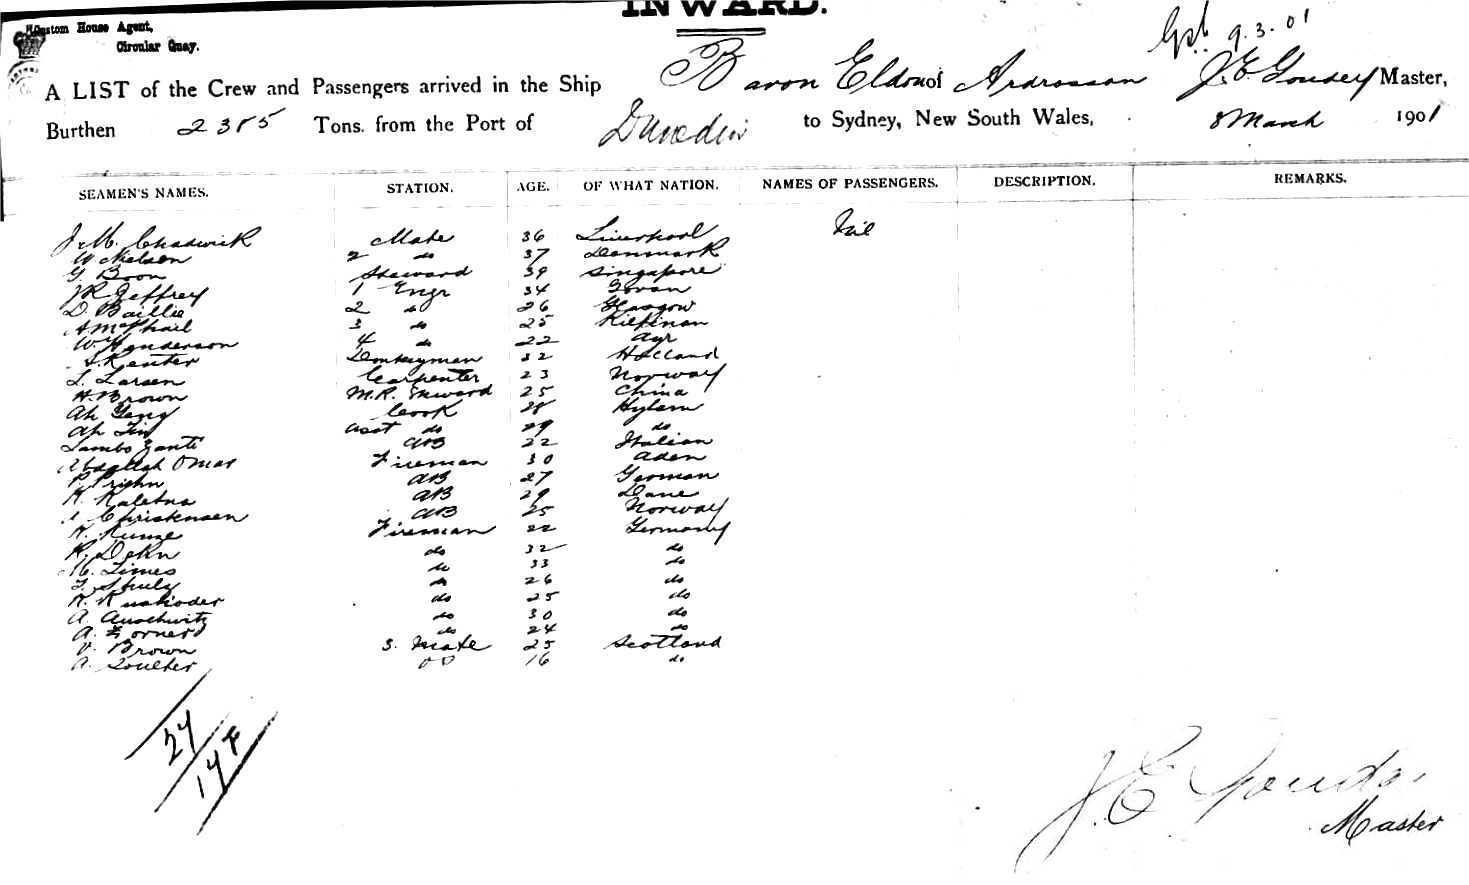 INWARD.
Custom House Agent,
Circular Quay.
9.3.01
A LIST of the Crew and Passengers arrived in the Ship Baron Eldon of Ardrossan J. E. Master,
Burthen 2385 Tons. from the Port of Dunedin to Sydney, New South Wales, 8 March 1901
SEAMEN'S NAMES. STATION. AGE. OF WHAT NATION. NAMES OF PASSENGERS. DESCRIPTION. REMARKS.
J. M. Chadwick Mate 36 Liverpool Nil
W Nielsen 2 do 37 Denmark
G. Boon Steward 39 Singapore
J R Jeffrey 1 Engr 34 Govan
D. Baillie 2 do 26 Glasgow
A McPhail 3 do 25 Kilfinan
W. Henderson 4 do 22 Ayr
Donkeyman 32 Holland
L. Larsen Carpenter 23 Norway
H. Brown M.R. Steward 25 China
Ah Cook 28 Hylam
Ah asst do 29 do
AB 22 Italian
Abdallah Omar Fireman 30 Aden
P. AB 27 German
K. AB 29 Dane
Christensen AB 25 Norway
K. Fireman 22 Germany
R. Dehn do 32 do
M. Limes do 33 do
do 26 do
K. do 25 do
A. Auschwitz do 30 do
A. do 24 do
V. Brown 3. Mate 25 Scotland
A. 16 do
J E
Master